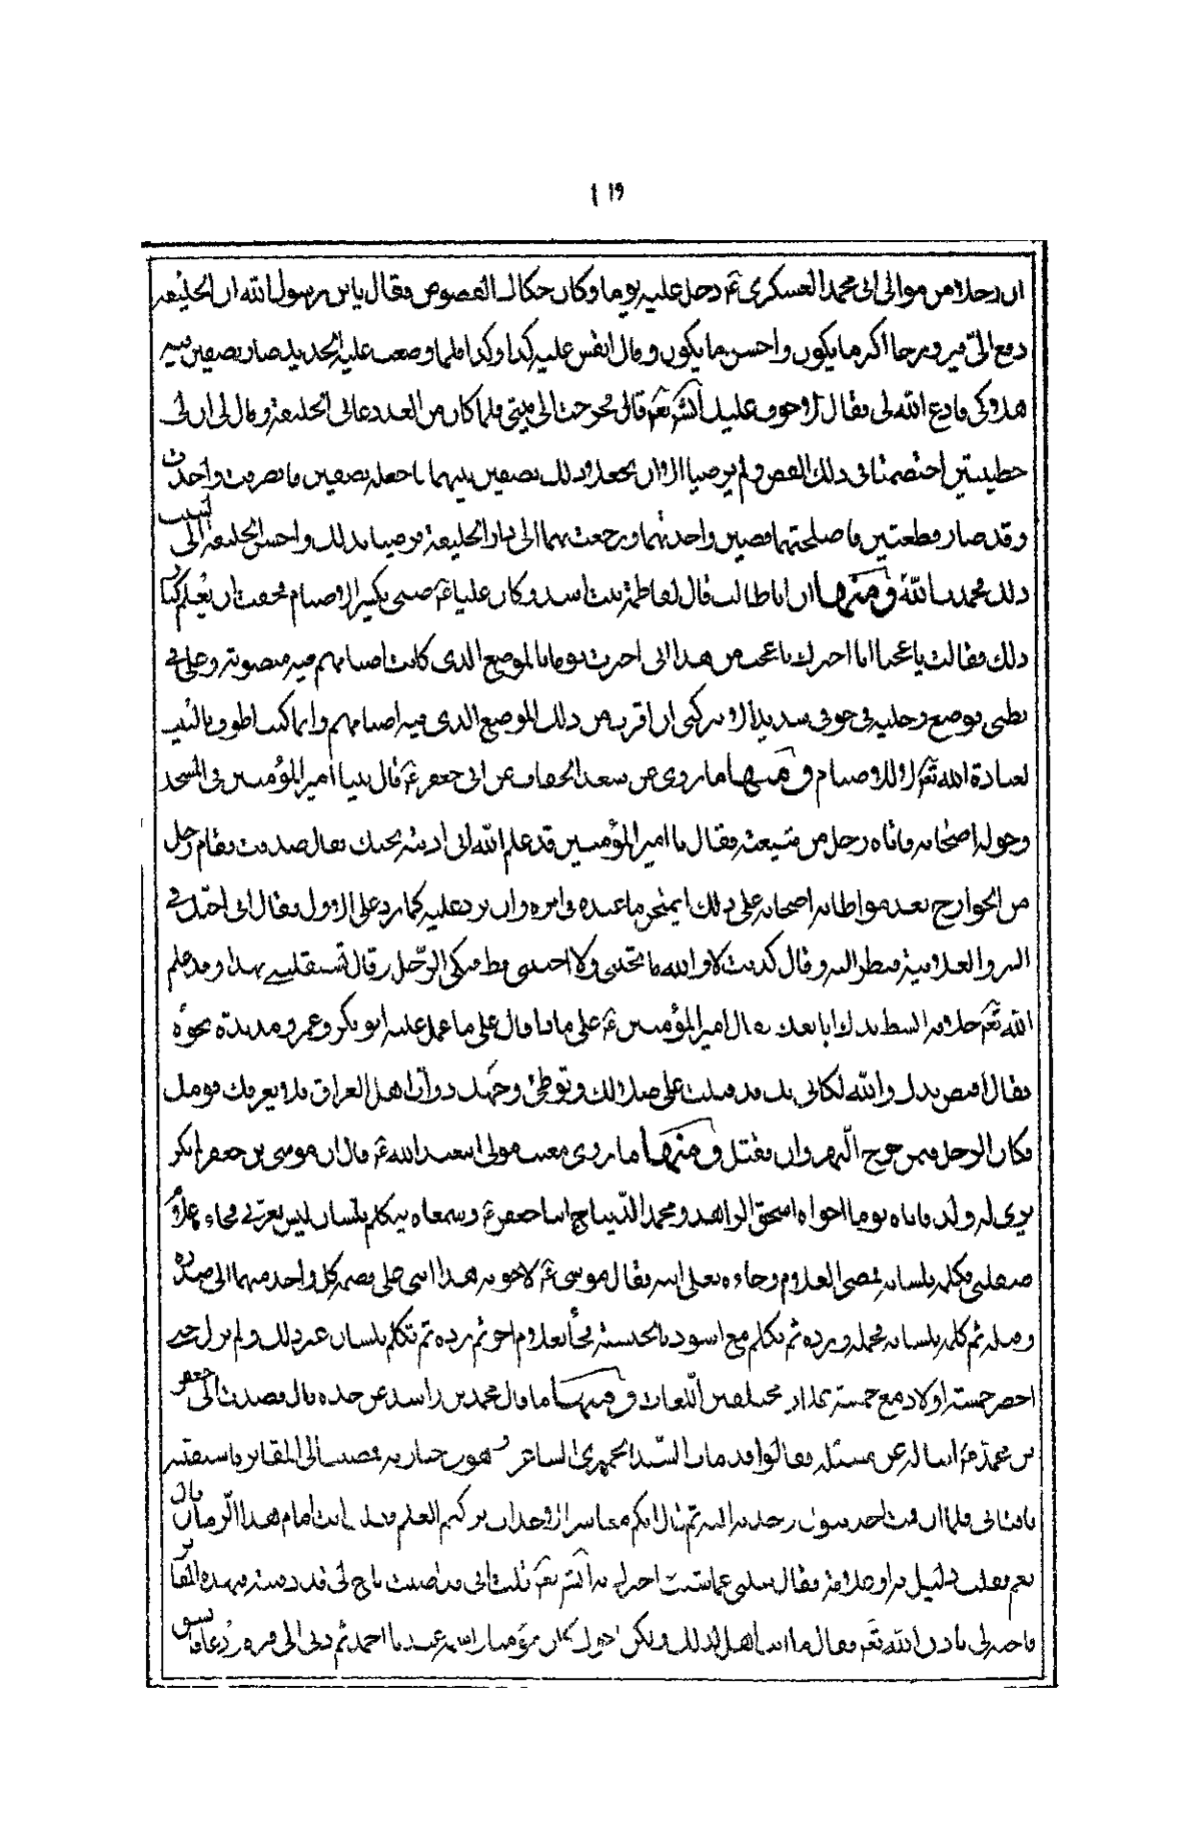 ١٩
ان رجلا من موالى ابى محمد العسكرى ع دخل عليه يوما وكان حكاك الفصوص فقال يا بن رسول الله ان الخليفه
دفع الىّ فيروزجا اكبر ما يكون واحسن ما يكون وقال انقش عليه كذا وكذا فلما وضعت عليه الحديد صار نصفين فيه
هلاكى فادع الله لى فقال لا خوف عليك انشاء الله تع قال فخرجت الى بيتى فلما كان من الغد دعانى الخليفة وقال لى ان لى
حظيتين اختصمتا فى ذلك الفص ولم يرضيا الا ان يجعل ذلك نصفين بينهما فاجعله نصفين فانصرفت واخذت
وقد صار قطعتين فاصلحتهما فصين واخذتهما ورجعت بهما الى دار الخليفة فرضيتا بذلك واحسن الخليفه الىّ بسبب
ذلك فحمدت الله ومنها ان ابا طالب قال لفاطمة بنت اسد وكان عليا ع صبى يكسر الاصنام فخفت ان يعلم كبار
ذلك فقالت يا عجبا انا اخبرك باعجب من هذا انى اجتزت يوما بالموضع الذى كانت اصنامهم فيه منصوبة وعلى فى
بطنى فوضع رجليه فى جوفى شديدا لا يتركنى ان اقرب من ذلك الموضع الذى فيه اصنامهم وانما كنت اطوف بالبيت
لعبادة الله تع لا للاصنام ومنها ما روى عن سعد الخفاف عن ابى جعفر ع قال بينا امير المؤمنين فى المسجد
وحوله اصحابه فاتاه رجل من شيعته فقال يا امير المؤمنين قد علم الله انى ادينه بحبك فقال صدقت فقام رجل
من الخوارج بعد مواطاة اصحابه على ذلك ليمتحن ما عنده فى امره وان يرد عليه كما رد على الاول فقال انى احبك فى
السر والعلانية فنظر اليه وقال كذبت لا والله ما تحبنى ولا احببتنى قط فبكى الرجل وقال تستقبلنى بهذا وقد علم
الله تع خلافه ابسط يدك ابايعك فقال امير المؤمنين ع على ماذا قال على ما عمل عليه ابو بكر وعمر ومد يده نحوه
فقال اقبض يدك والله لكانى بك قد قتلت على ضلالك وتوطئ وجهك دواب اهل العراق فلا يعرفك قومك
فكان الرجل فيمن خرج النهروان فقتل ومنها ما روى معتب مولى ابى عبد الله ع قال ان موسى بن جعفر لم يكن
يرى له ولد فاتاه يوما اخواه اسحق الزاهد ومحمد الديباج ابنا جعفر ع وسمعاه يتكلم بلسان ليس بعربى فجاء غلام
صقلبى فكلمه بلسانه فمضى الغلام وجاءه بعلى ابنه فقال موسى ع لاخوته هذا ابنى على فضمه كل واحد منهما الى صدره
وقبله ثم كلمه بلسانه فحمله ورده ثم تكلم مع اسود بالحبشية فجاء بغلام اخر ثم رده ثم تكلم بلسان غير ذلك ولم يزل حتى
احضر خمسة اولاد مع خمسة غلمان مختلفين اللغات ومنها ما قال محمد بن راشد عن جده قال قصدت الى جعفر
بن محمد ع اساله عن مسئلة فقالوا قد مات السّيد الحميرى الشاعر وهو فى جنازته فمضيت الى المقابر فاستفتيته
فافتانى فلما ان قمت اخذ بثوبى فجذبه اليه ثم قال انكم معاشر الاحداث تركتم العلم فقلت انت امام هذا الزمان قال
نعم فقلت دليل او علامة فقال سلنى عما شئت اخبرك به انشاء الله تع قلت انى قد اصبت باخ لى قد دفنته بهذه المقابر
فاحيه لى باذن الله تع فقال ما انت اهل لذلك ولكن اخوك كان مؤمنا واسمه عندنا احمد ثم دنى الى قبره ودعا فانشق